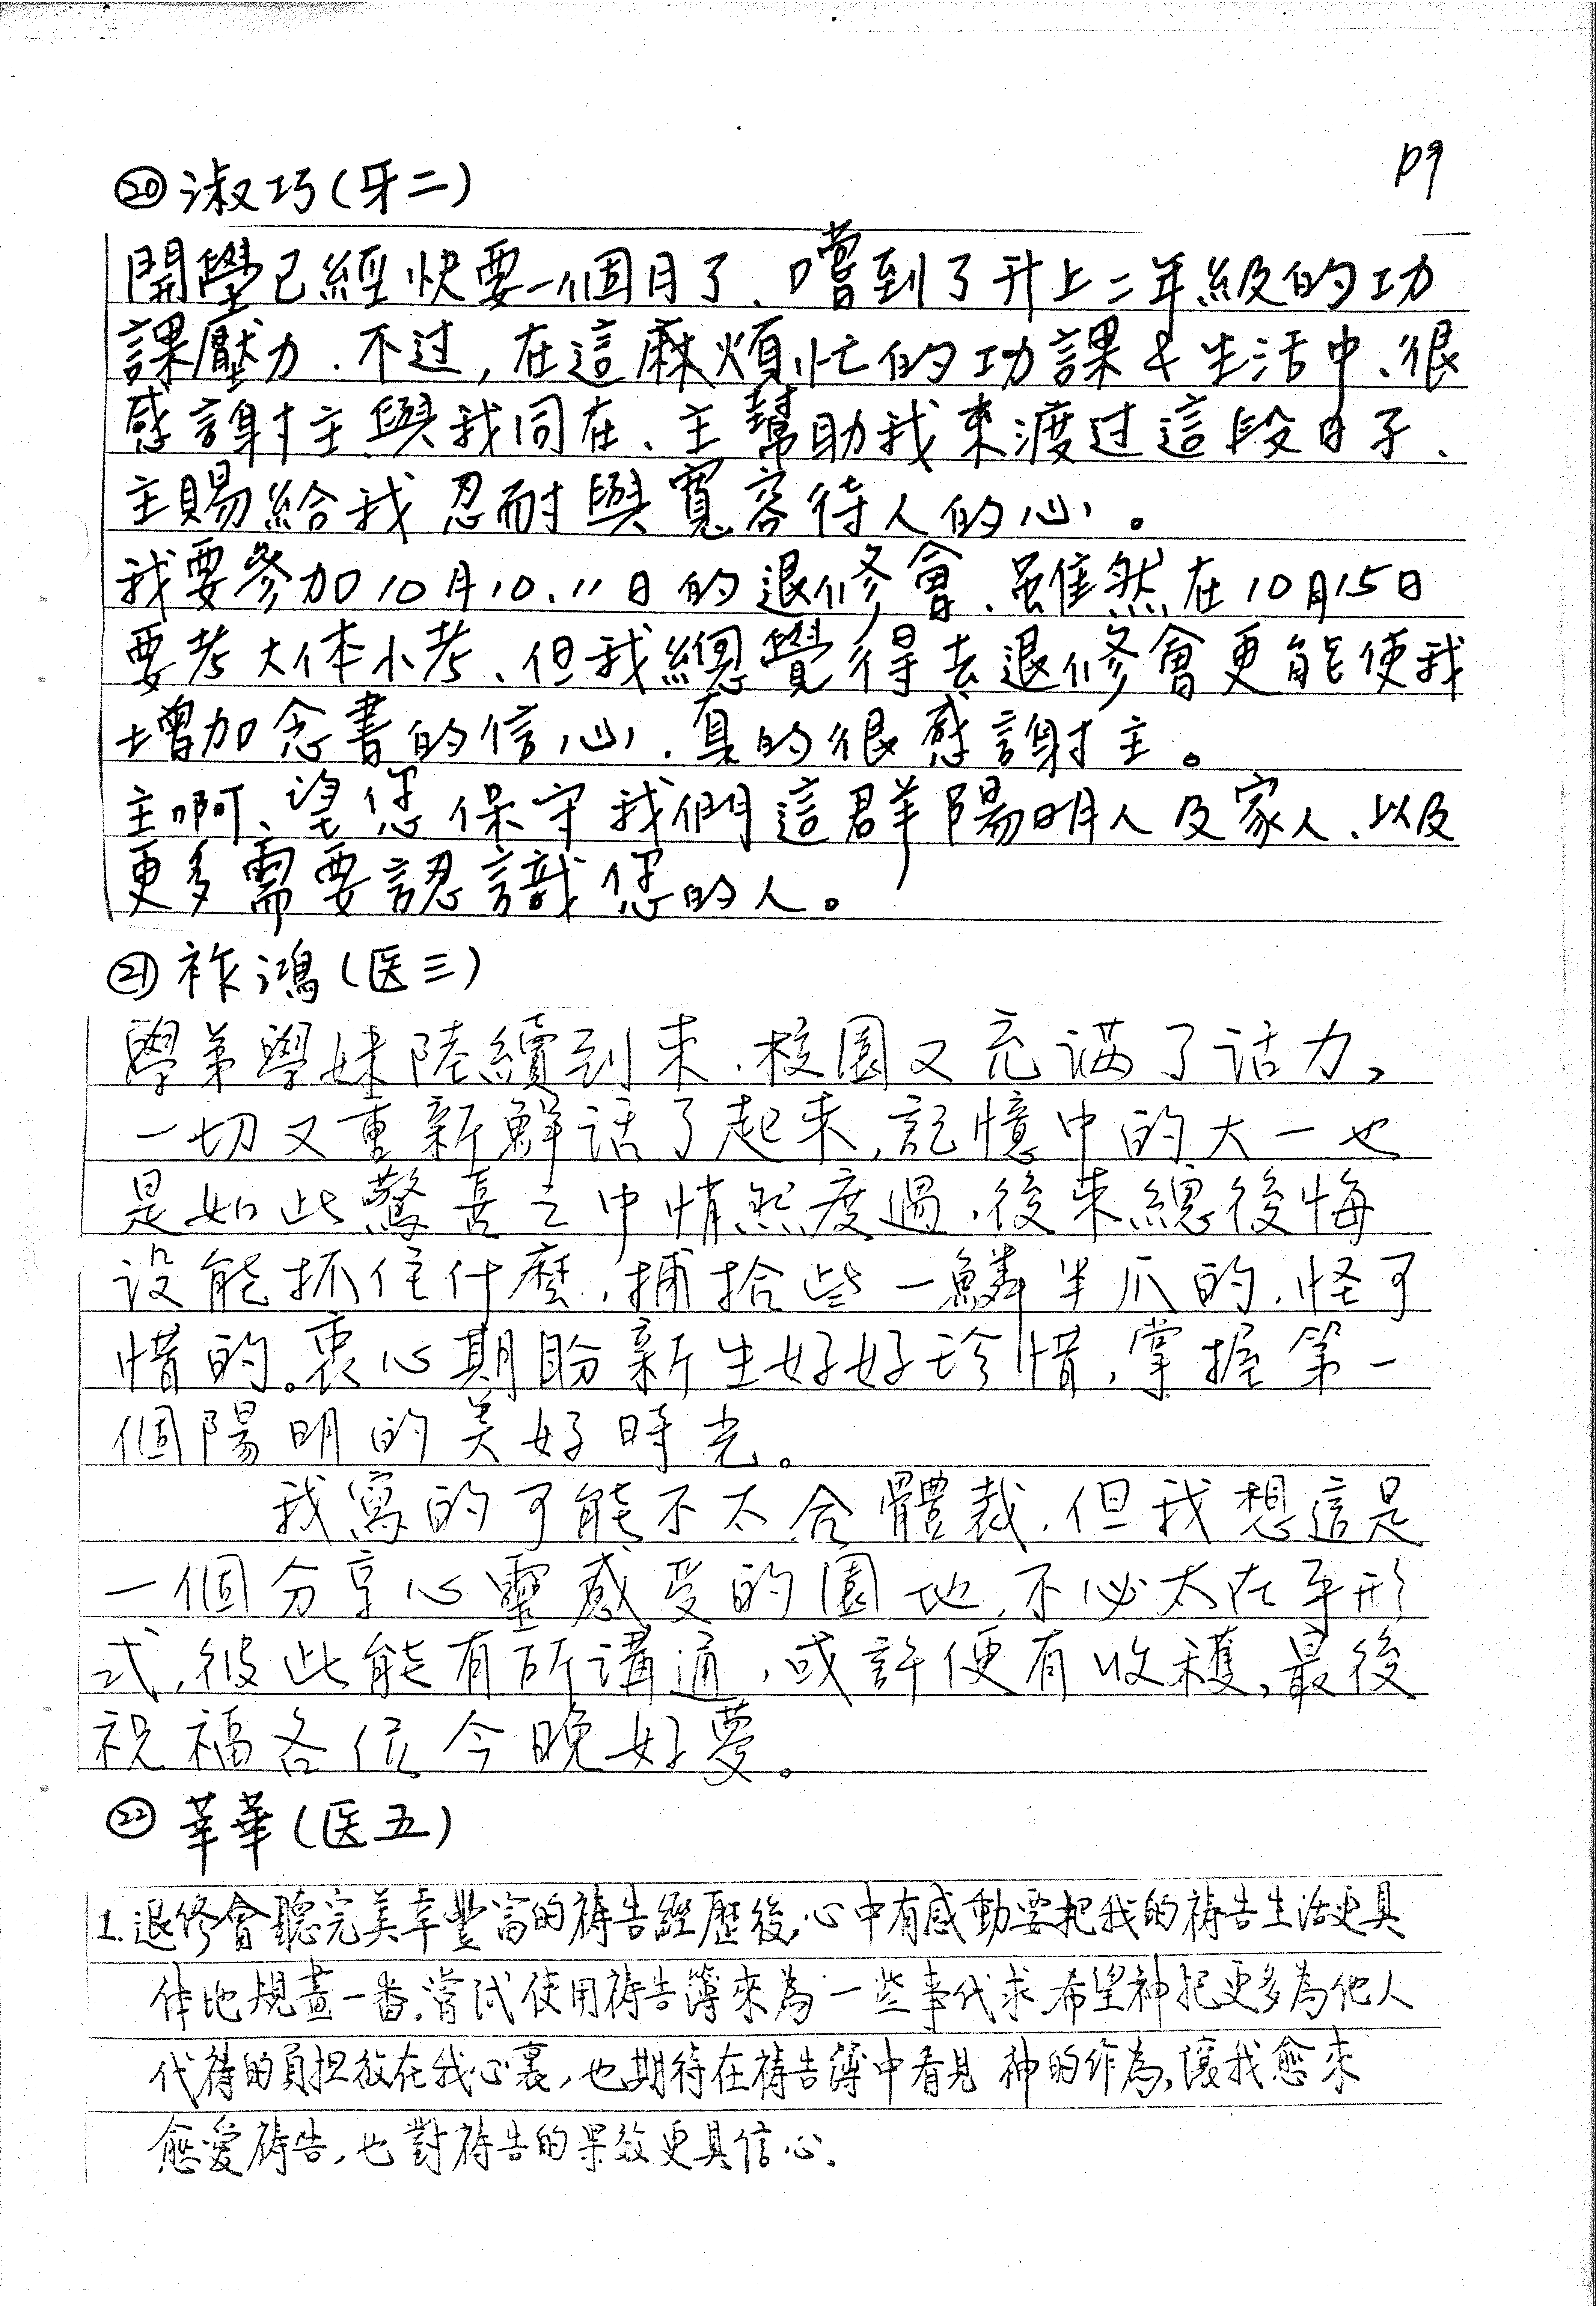 p9
⑳淑巧(牙二)
開學已經快要一個月了、嚐到了升上二年級的功
課壓力.不过,在這麻煩忙的功課&生活中、很
感謝主與我同在、主幫助我來渡过這段日子、
主賜給我忍耐與寬容待人的心。
我要參加10月10、11日的退修會、雖然在10月15日
要考大体小考、但我總覺得去退修會更能使我
增加念書的信心.真的很感謝主。
主啊、望您保守我們這群陽明人及家人、以及
更多需要認識您的人。
㉑祚鴻(医三)
學弟學妹陸續到來.校園又充满了活力,
一切又重新鮮活了起來,記憶中的大一也
是如此驚喜之中悄然度過.後來總後悔
没能抓住什麼,捕拾些一鱗半爪的,怪可
惜的。衷心期盼新生好好珍惜,掌握第一
個陽明的美好時光。
我寫的可能不太合體裁.但我想這是
一個分享心靈感受的園地,不必太在乎形
式,彼此能有所溝通,或許便有收穫,最後
祝福各位今晚好夢。
㉒莘華(医五)
1.退修會聽完美幸豐富的禱告經歷後,心中有感動要把我的禱告生活更具
体地規畫一番,嘗試使用禱告簿來為一些事代求,希望神把更多為他人
代禱的負担放在我心裏,也期待在禱告簿中看見神的作為,讓我愈來
愈愛禱告,也對禱告的果效更具信心.